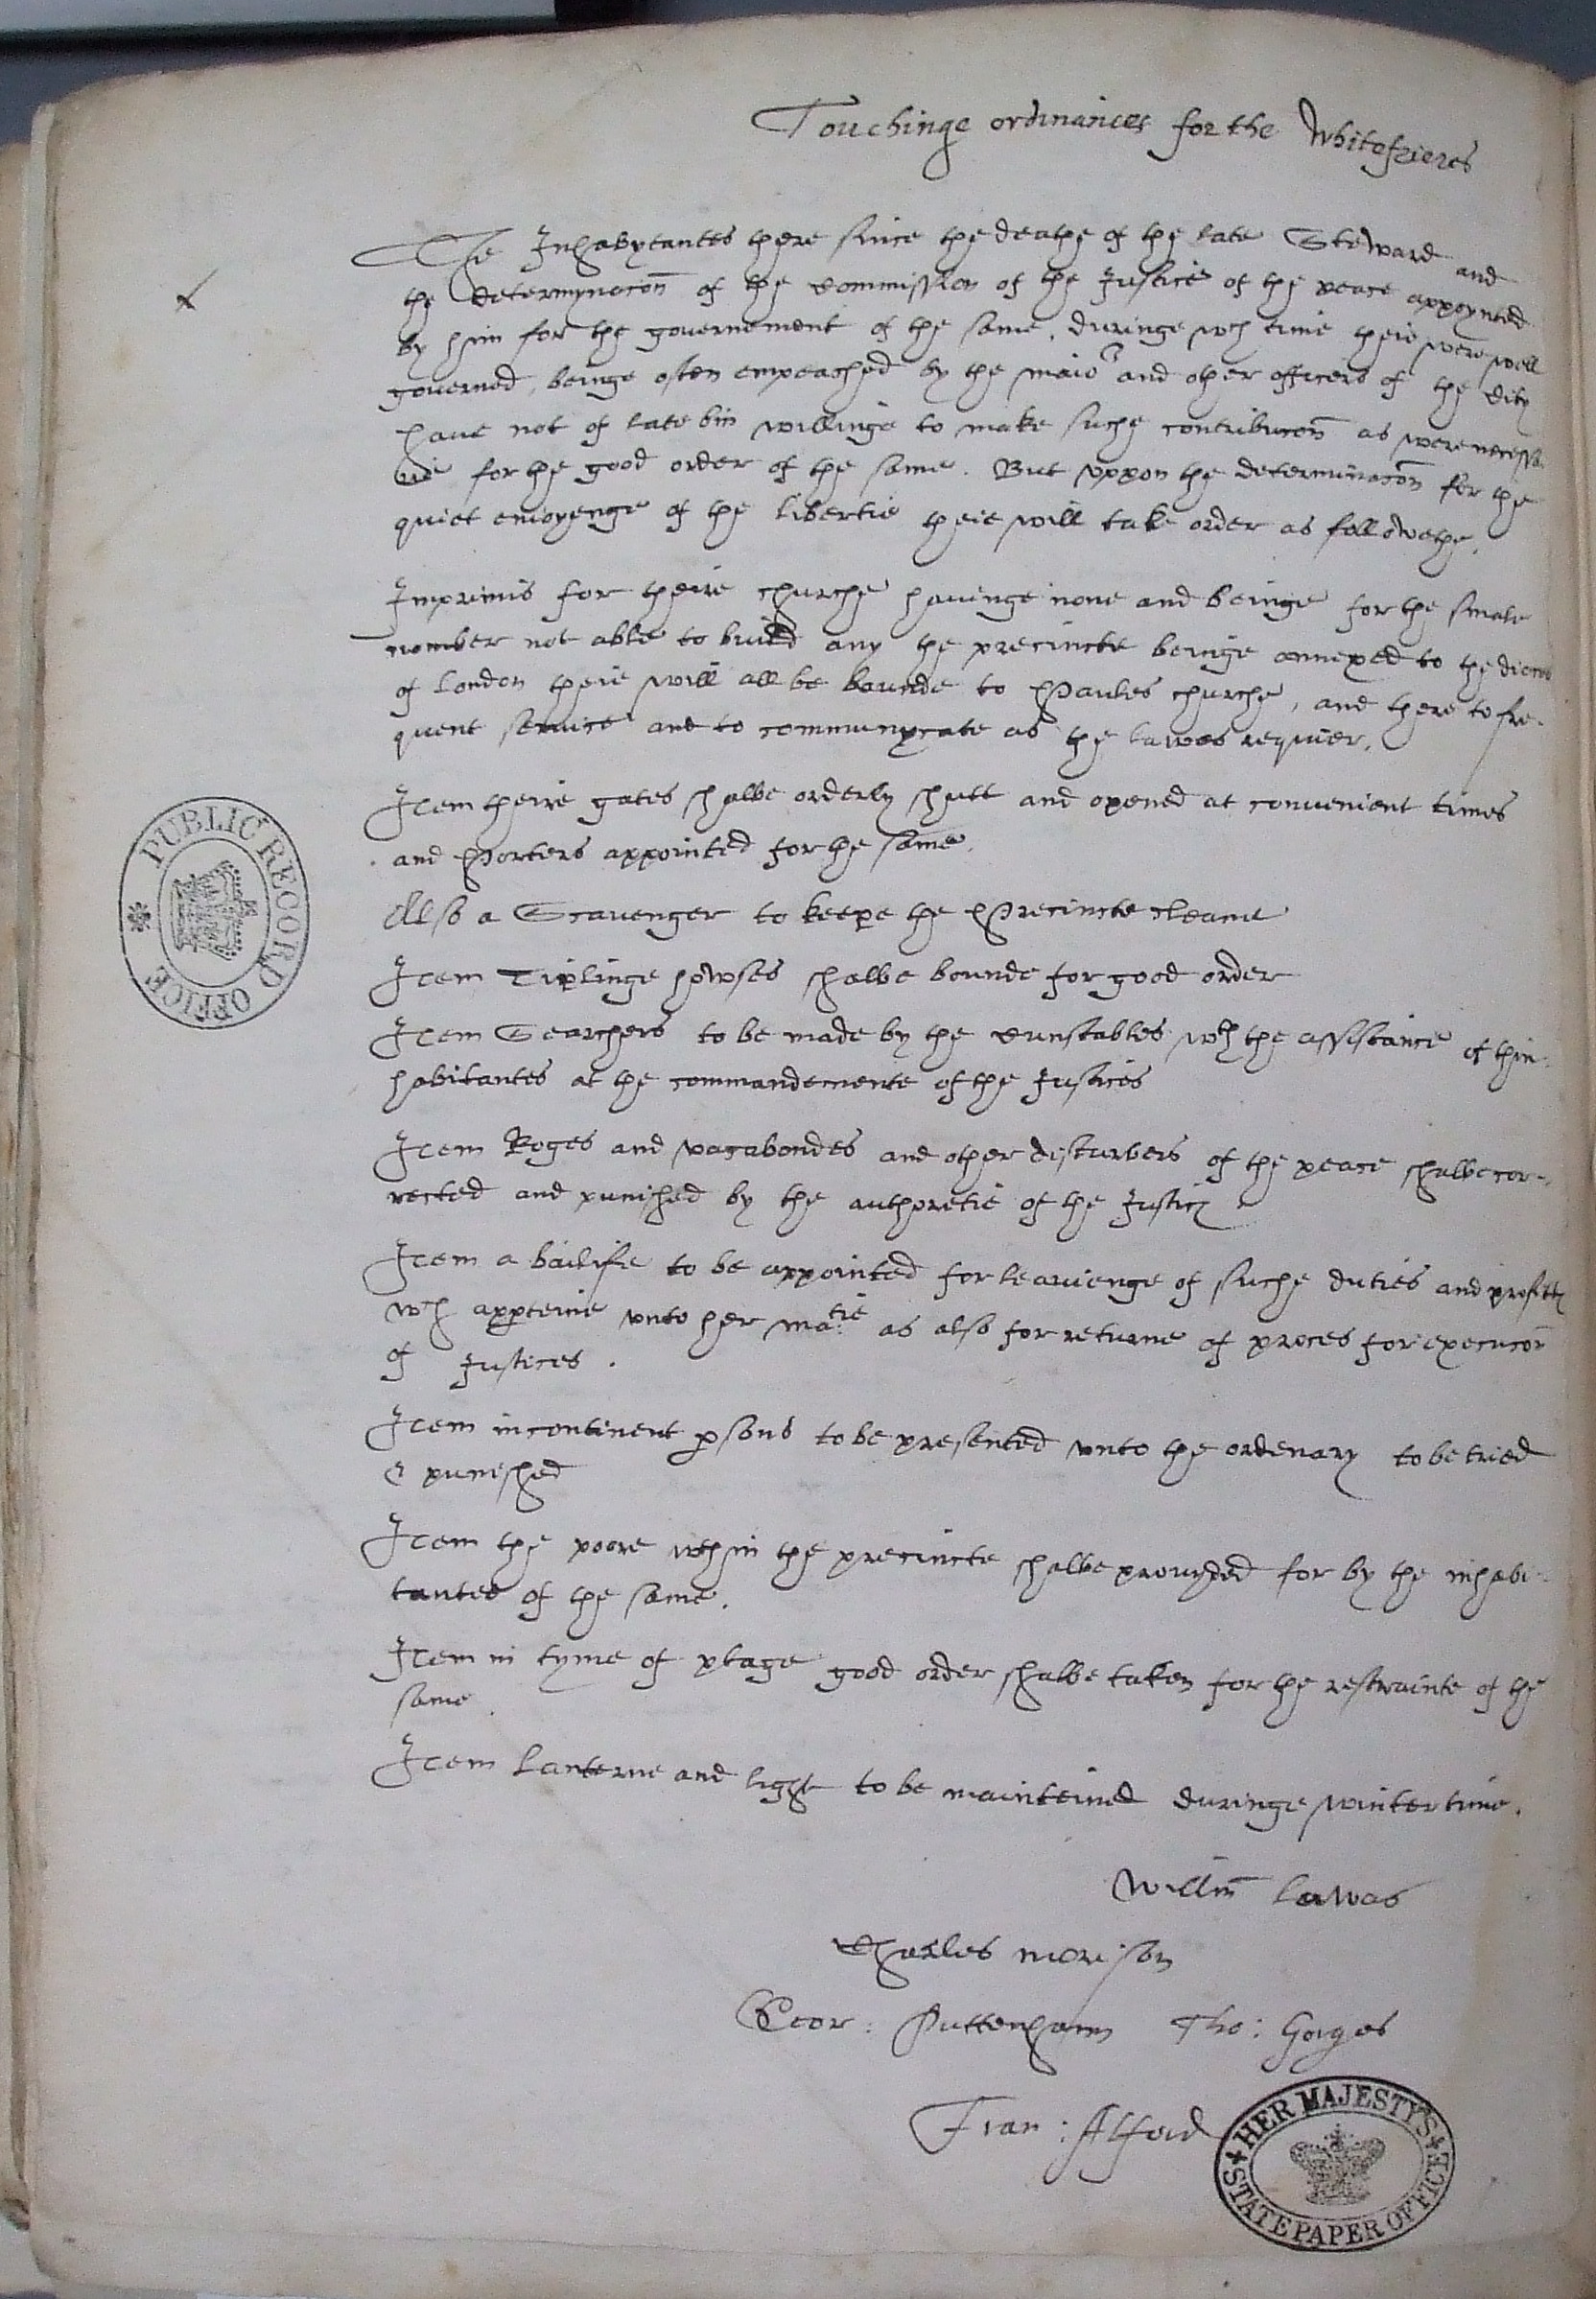 Touchinge ordinances for the Whitefriers
The Inhabytantes there since the deathe of the late Steward and
the determynacon of the Commission of the Justice of the peace appoynted
by him for the governement of the same, duringe wch time theie were well
governed, beinge often empeached by the maior and other officers of the City
have not of late bin willinge to make suche contribucon as were necessa-
rie for the good order of the same. But uppon the determinacon for the
quiet enioyenge of the libertie theie will take order as followethe.
Imprimis for theire churche havenge none and beinge for the smale
nomber not able to build any the precincte beinge annexed to the dioces
of London theie will all be bounde to Paules churche, and there to fre-
quent service and to communycate as the lawes requier.
Item theire gates shalbe orderly shutt and opened at convenient times
and Porters appointed for the same.
Also a Scavenger to keepe the Precincte cleane
Item Tiplinge howses shalbe bounde for good order
Item Searchers to be made by the Cunstables wth the assistance of thin-
habitantes at the commandemente of the Justices
Item Roges and vacabondes and other disturbers of the peace shalbe cor-
rected and punished by the authoretie of the Justic
Item a bailife to be appointed for leavienge of suche duties and profitts
wch apperteine unto her matie as also for returne of proces for execucon
of Justices.
Item incontinent psons to be presented unto the ordenary to be tried
& punished
Item the poore wthin the precincte shalbe provyded for by the inhabi-
tantes of the same.
Item in tyme of plage good order shalbe taken for the restrainte of the
same.
Item Lanterne and light to be mainteined duringe winter time.
Willm Lawas
Charles morison
Geor: Puttenham Tho: Gorges
Fran: Alford
PUBLIC RECORD OFFICE
HER MAJESTY'S STATE PAPER OFFICE